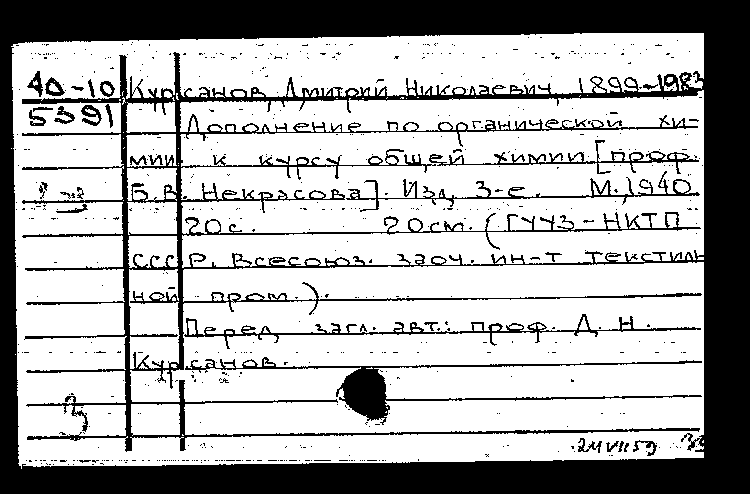 40-10 Курсанов, Дмитрий Николаевич, 1899-1983
5391 Дополнение по органической хи-
мии к курсу общей химии [проф.
Б.В. Некрасова]. Изд. 3-е. М., 1940
20с. 20см. (ГУУЗ-НКТП
СССР. Всесоюз. заоч. ин-т текстиль
ной пром.).
Перед загл. авт.: проф. Д. Н.
Курсанов.